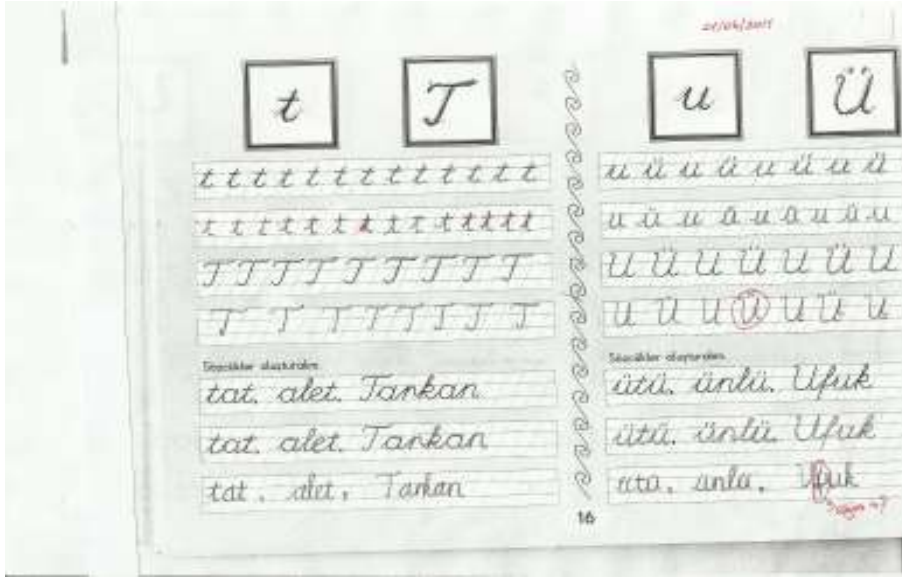 t T
t t t t t t t t t t t t t
t t t t t t t t t t t t t t
T T T T T T T T T
T T T T T T T T
Sözcükler oluşturalım.
tat. alet. Tarkan
tat. alet. Tarkan
tat. alet. Tarkan
u Ü
u ü u ü u ü u ü
u ü u ü u ü u ü u
U Ü U Ü U Ü U
U Ü U Ü U Ü U
Sözcükler oluşturalım.
ütü. ünlü. Ufuk
ütü. ünlü. Ufuk
ütü. ünlü. Ufuk
16